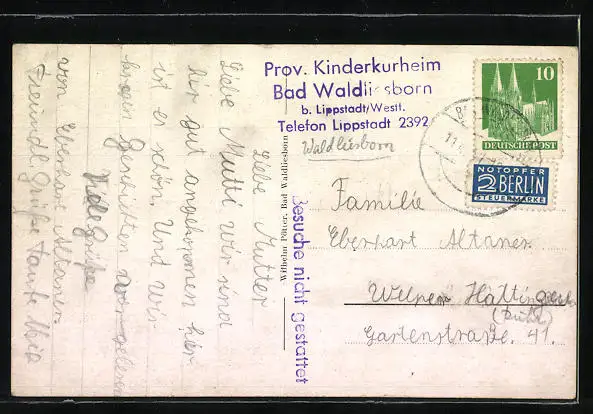 Liebe Mutter
Liebe Mutti wir sind
hir gut angekommen hir
ist es schön. Und wir
kriegen Geschichten vorgelesen
Viele Grüße
von Eberhart Altaner.
Freundl. Grüße Tante
Wilhelm Pötter, Bad Waldliesborn
Besuche nicht gestattet
Prov. Kinderkurheim
Bad Waldliesborn
b. Lippstadt/Westf.
Telefon Lippstadt 2392
Waldliesborn
10
DEUTSCHE POST
NOTOPFER
2 BERLIN
STEUERMARKE
Familie
Eberhart Altaner
Welper Hattingen
(Ruhr)
Gartenstraße 41.